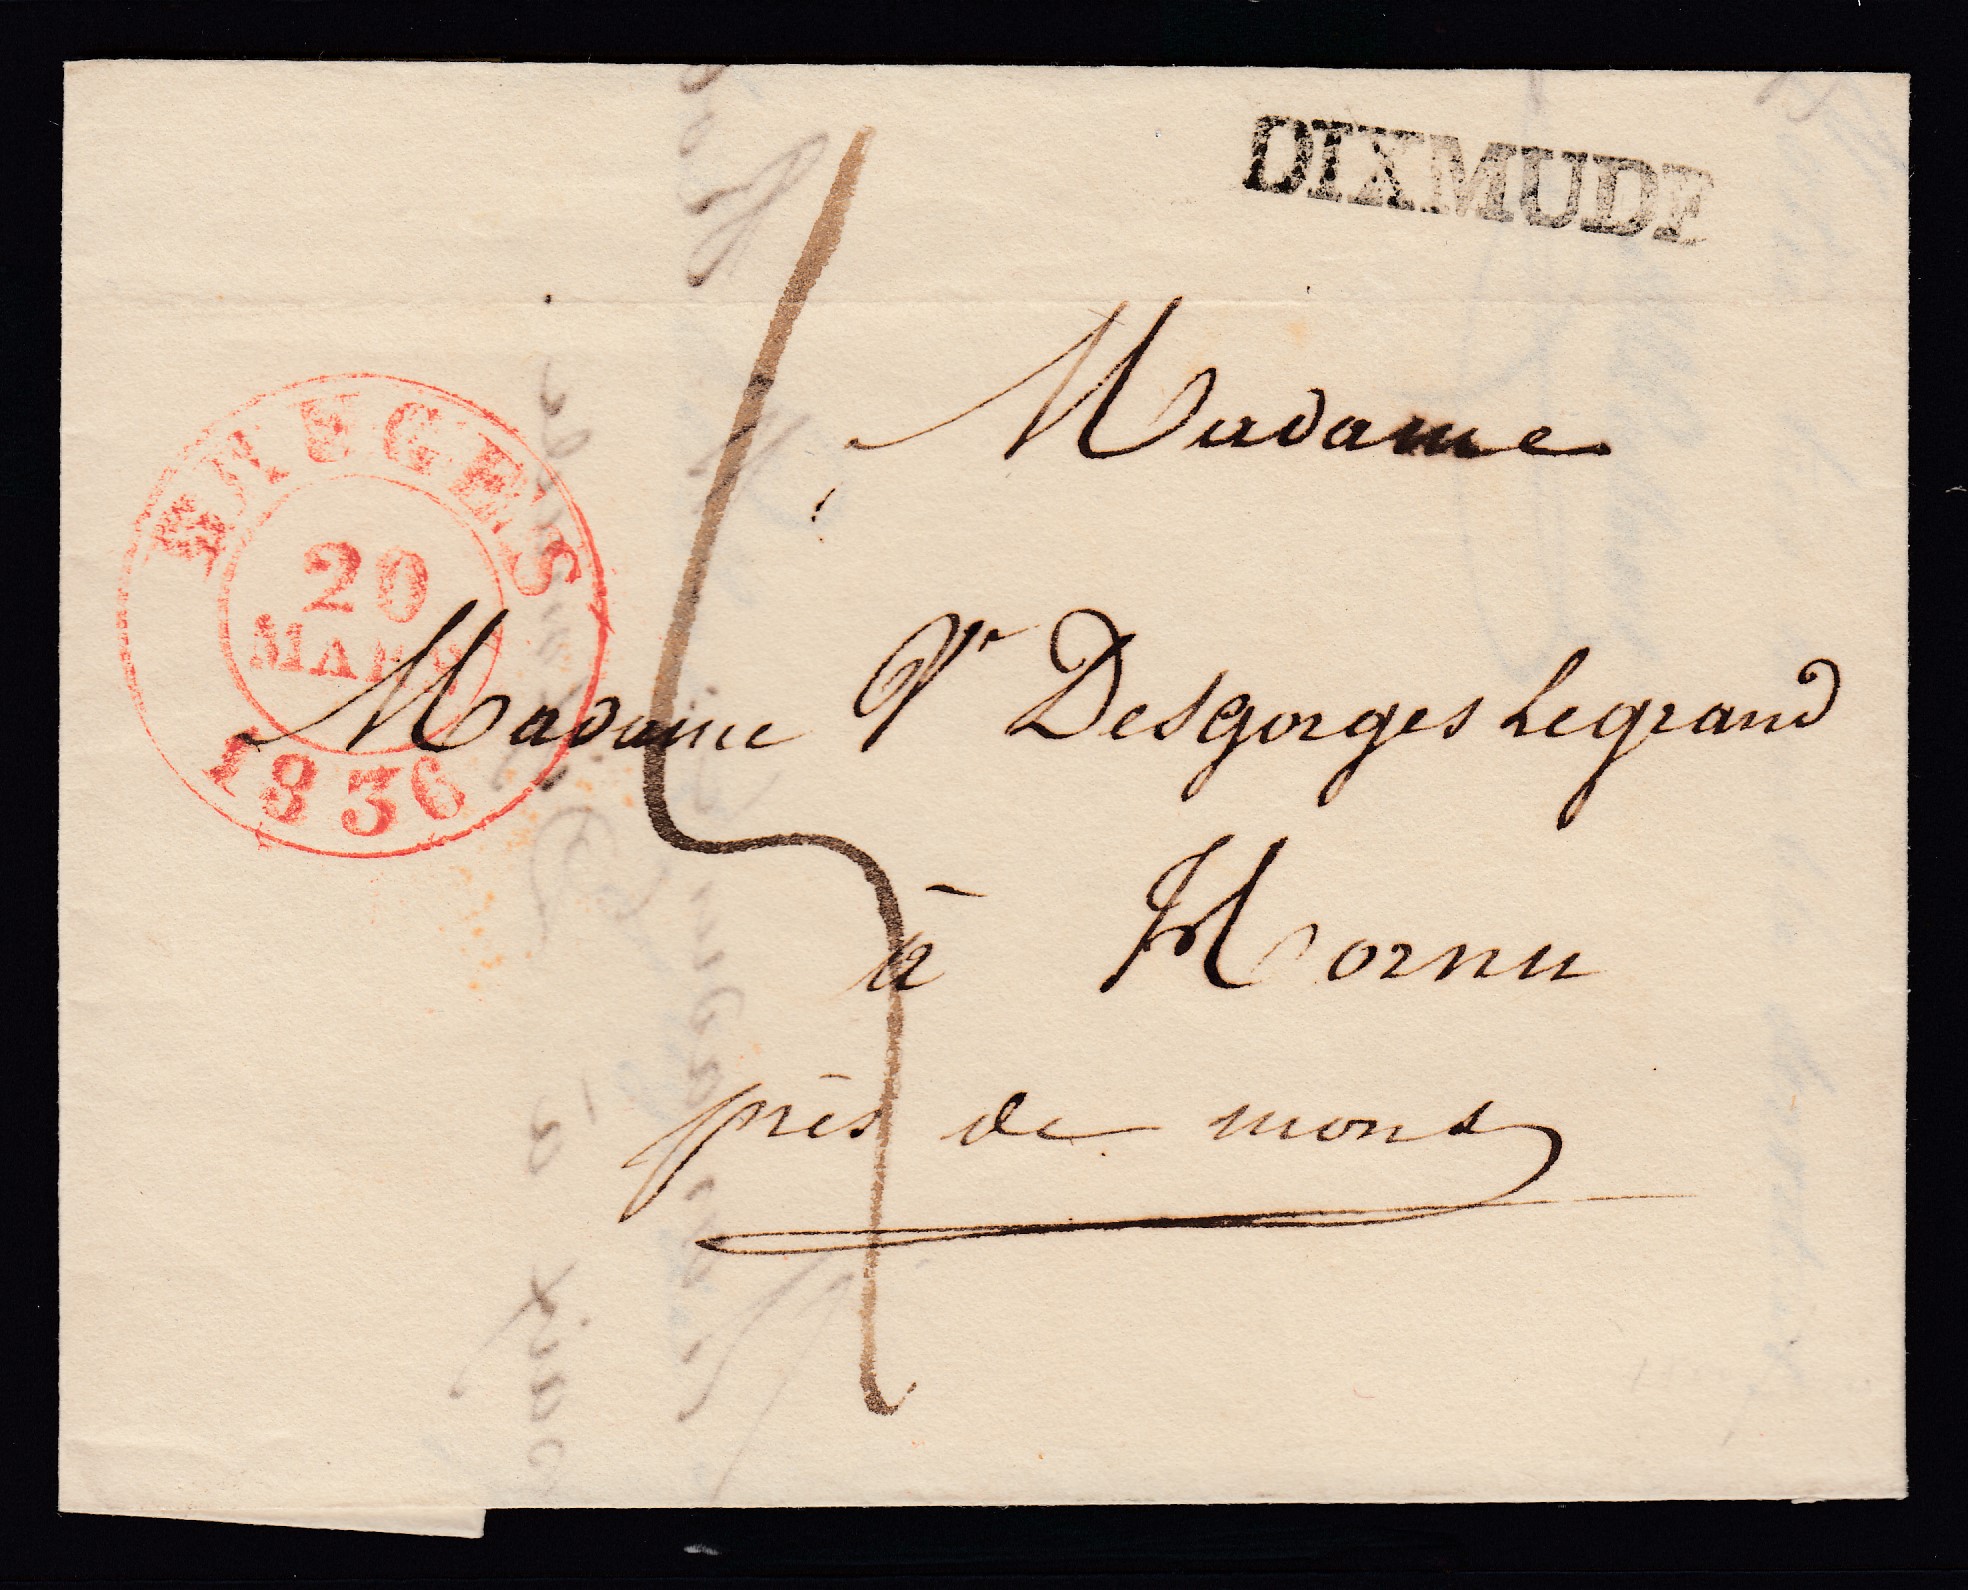 DIXMUDE
BRUGES
20
MARS
1836
Madame
Madame Ve Desgorges Legrand
à Hornu
près de mons